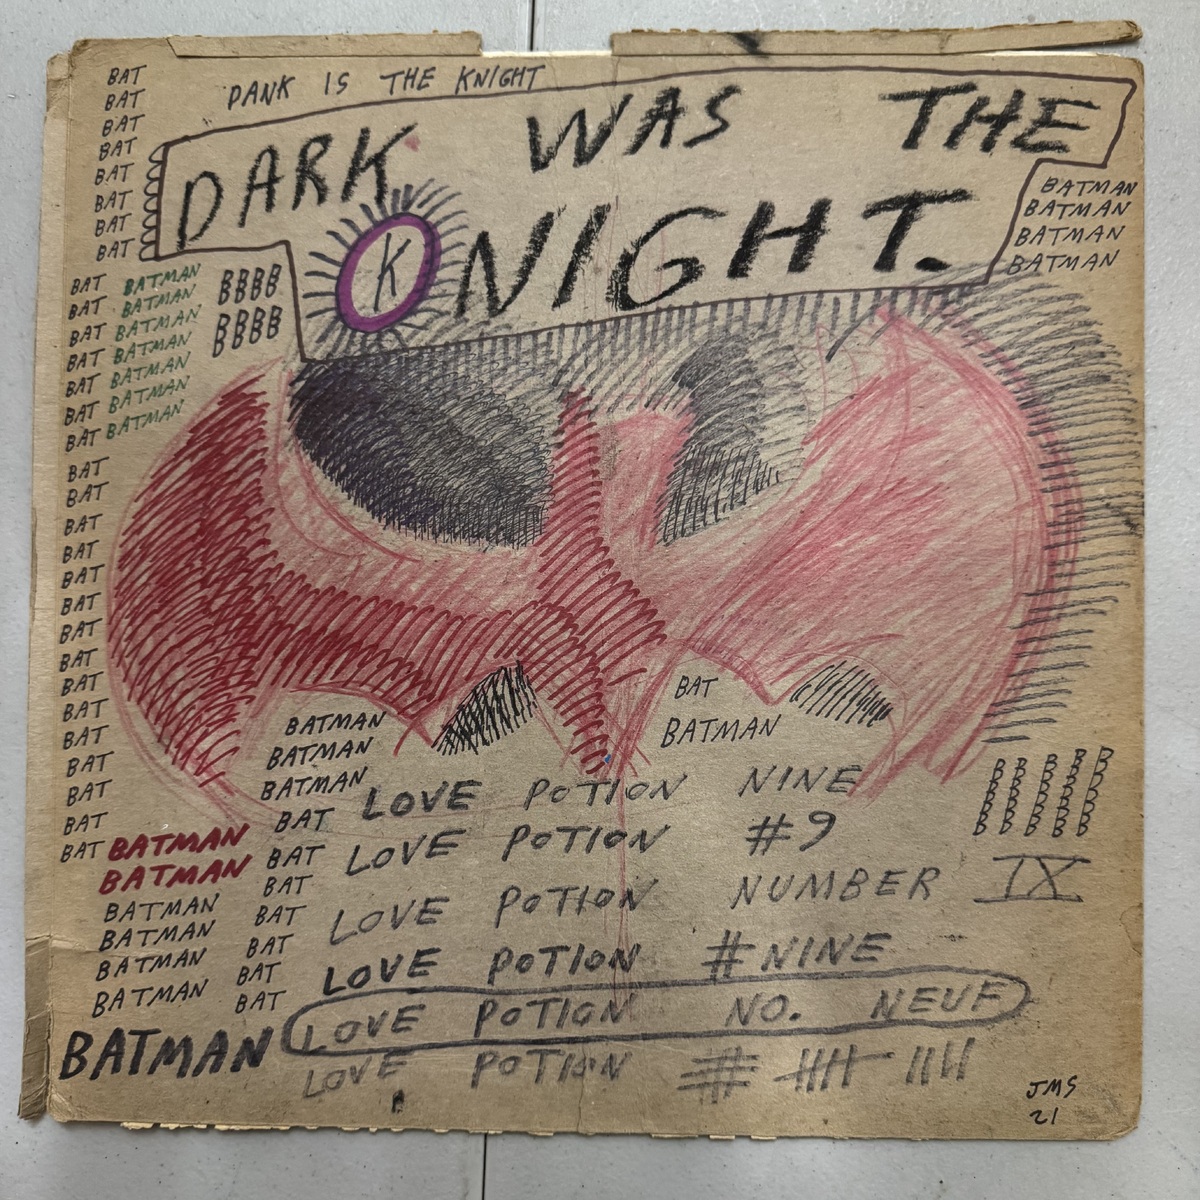 BAT
BAT
BAT
BAT
BAT
BAT
BAT
BAT
DANK IS THE KNIGHT
DARK WAS THE
K NIGHT.
BATMAN
BATMAN
BATMAN
BATMAN
BAT BATMAN
BAT BATMAN
BAT BATMAN
BAT BATMAN
BAT BATMAN
BAT BATMAN
BAT BATMAN
BBBB
BBBB
BAT
BAT
BAT
BAT
BAT
BAT
BAT
BAT
BAT
BAT
BAT
BAT
BAT
BAT
BAT BATMAN
BATMAN
BATMAN
BATMAN
BATMAN
BATMAN
BATMAN
BATMAN
BATMAN
BATMAN
BAT
BAT
BAT
BAT
BAT
BAT
BAT
BAT
BATMAN
LOVE POTION NINE
LOVE POTION #9
LOVE POTION NUMBER IX
LOVE POTION #NINE
LOVE POTION NO. NEUF
LOVE POTION # |||| ||||
JMS
21